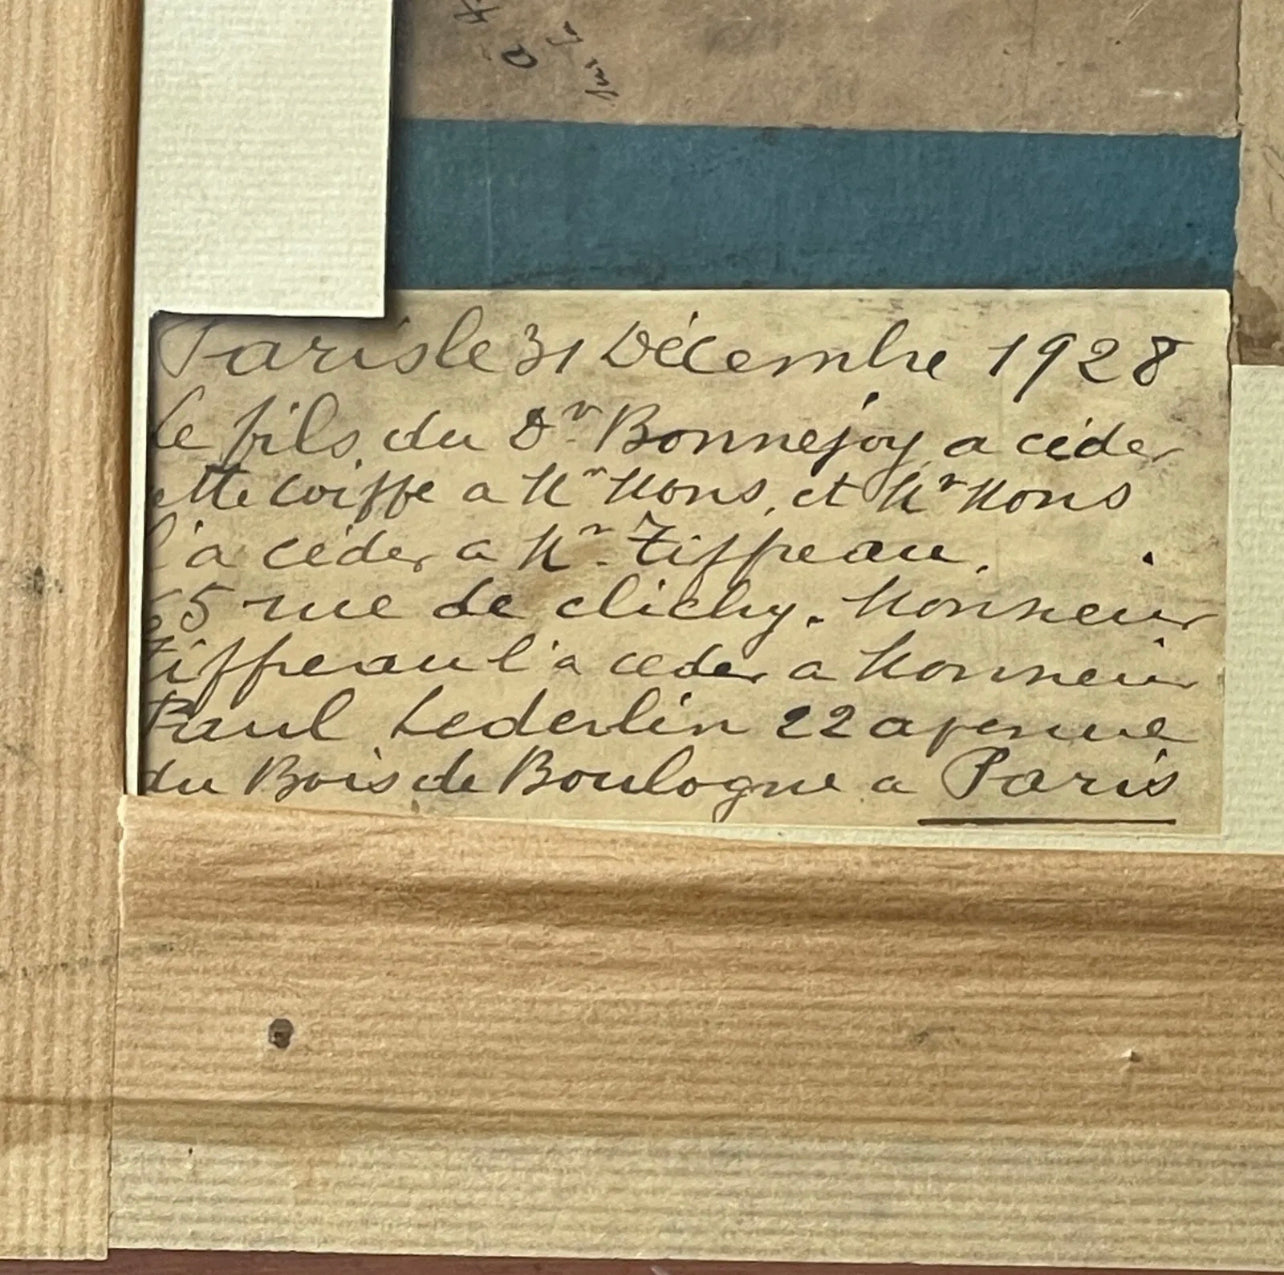 a
Paris le 31 Décembre 1928
Le fils du Dr. Bonnejoy a céder
ette coiffe a Mr Mons, et Mr Mons
l'a céder a Mr. Tiffreau.
65 rue de clichy. Monsieur
Tiffreau l'a ceder a Monsieur
Paul Lederlin 22 avenue
du Bois de Boulogne a Paris